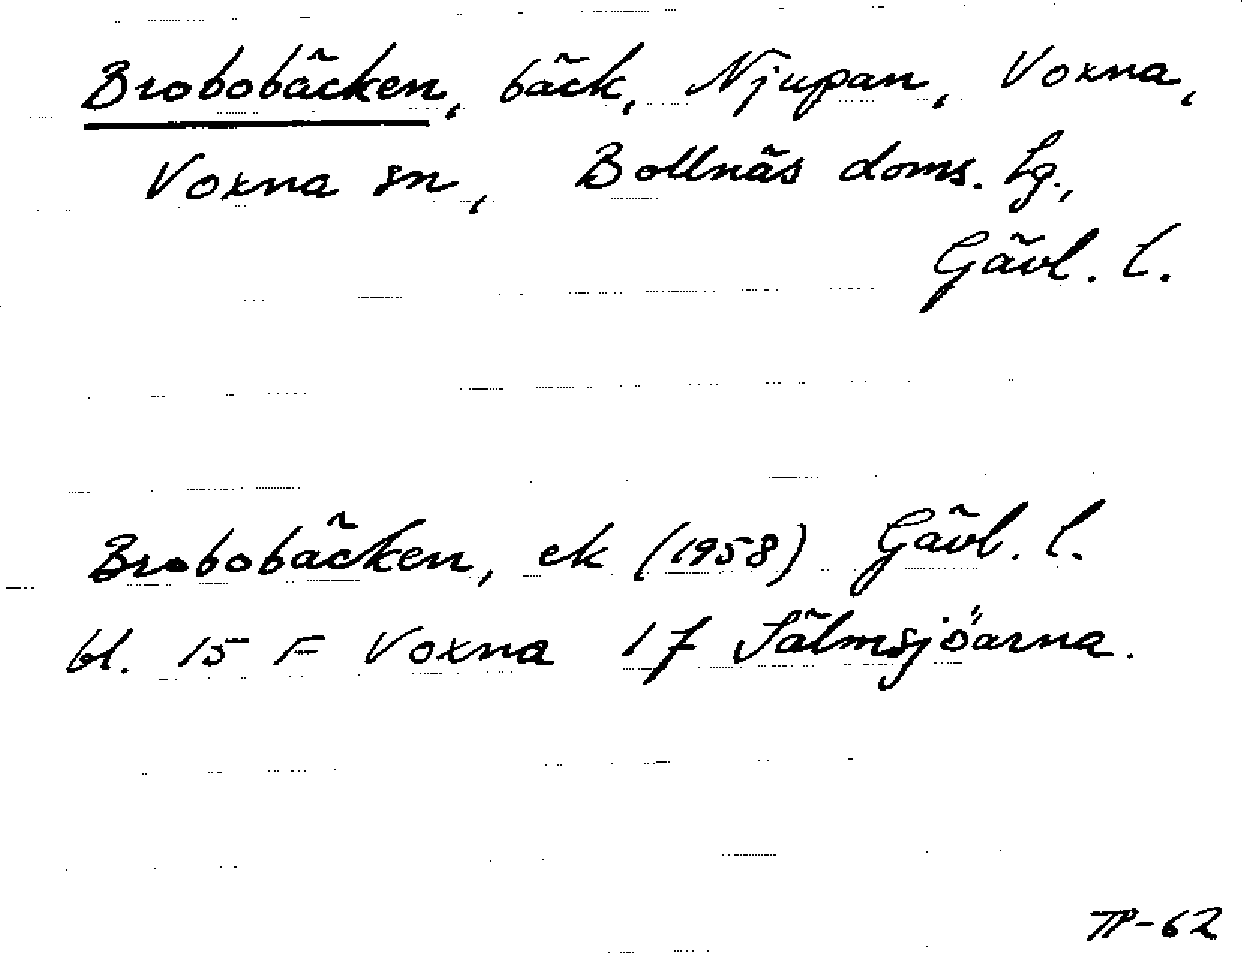 Brobobäcken, bäck, Njupan, Voxna,
Voxna sn, Bollnäs doms. lg.,
Gävl. l.
Brobobäcken, ek (1958) Gävl. l.
bl. 15 F Voxna 1 f Sälmsjöarna.
TP-62